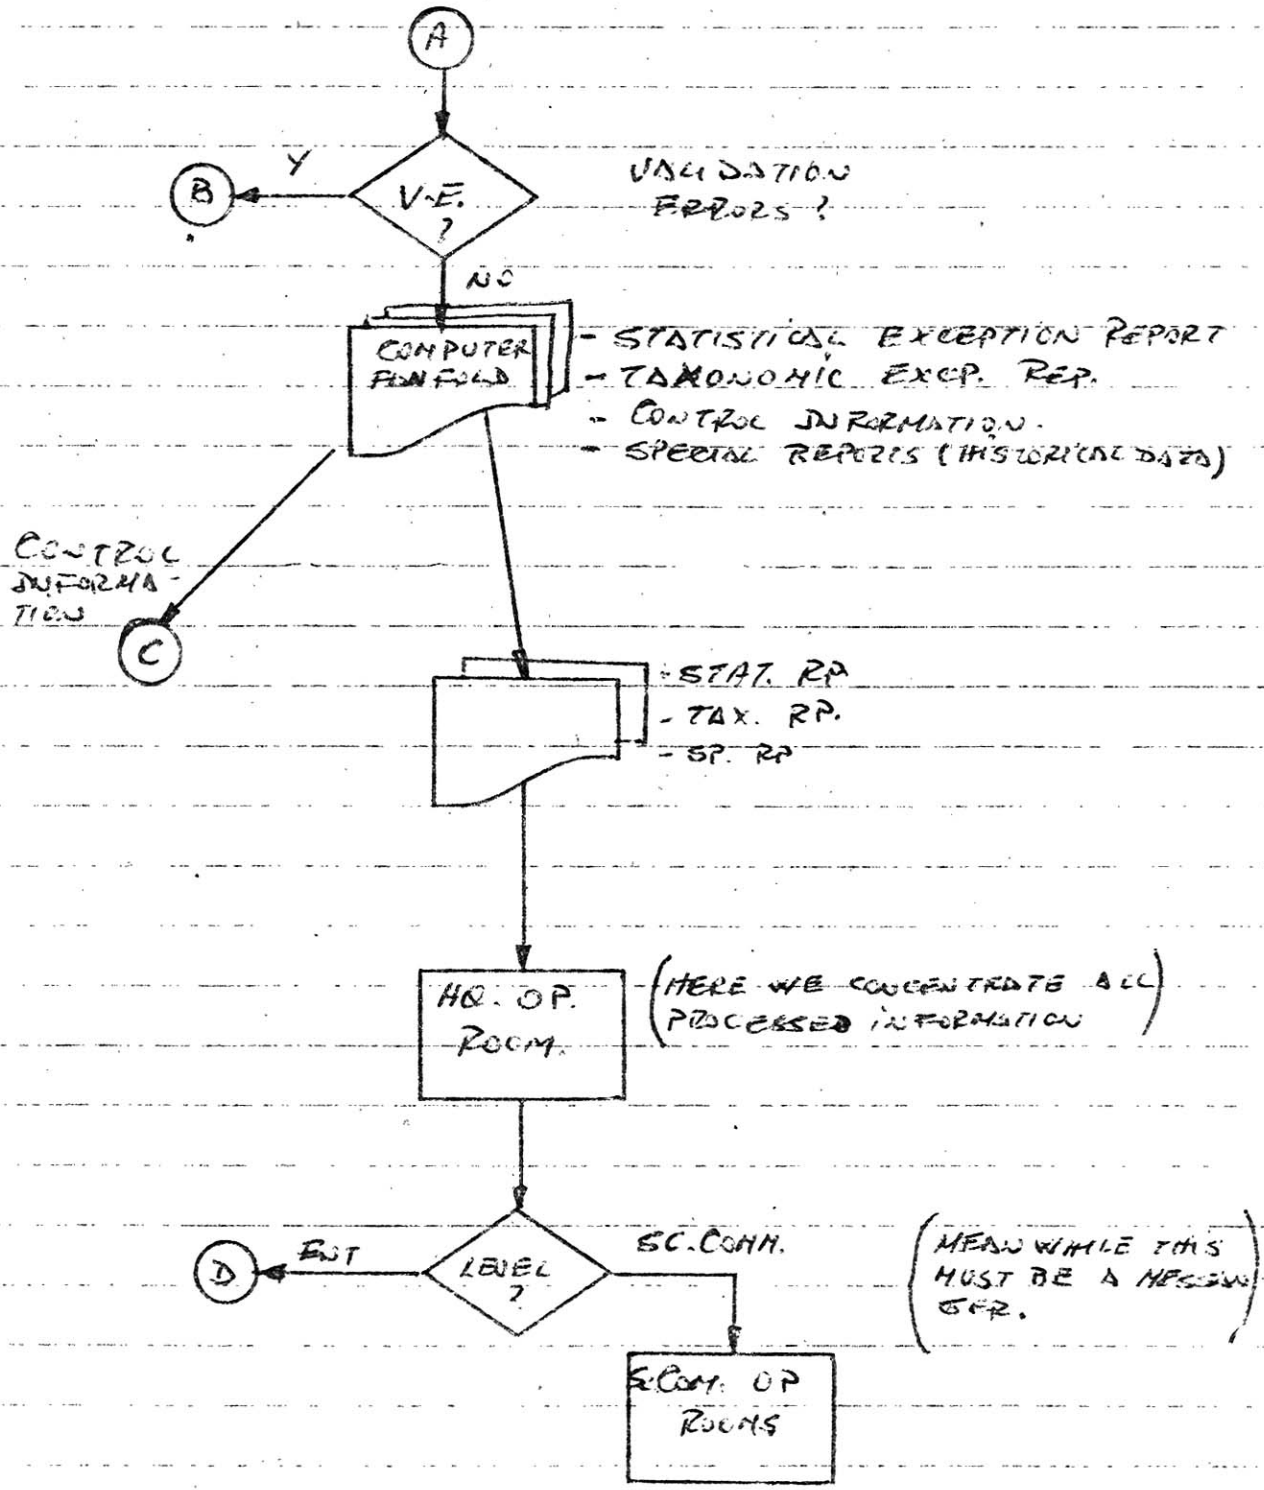 A
Y
B
V.E.
?
VALIDATION
ERRORS?
NO
COMPUTER
FANFOLD
- STATISTICAL EXCEPTION REPORT
- TAXONOMIC EXCP. REP.
- CONTROL INFORMATION.
- SPECIAL REPORTS (HISTORICAL DATA)
CONTROL
INFORMA-
TION
C
- STAT. RP
- TAX. RP.
- SP. RP
HQ. OP.
ROOM.
(HERE WE CONCENTRATE ALL
PROCESSED INFORMATION)
D
ENT
LEVEL
?
SC.COMM.
(MEANWHILE THIS
MUST BE A MESSEN
GER.)
S.COM. OP
ROOMS